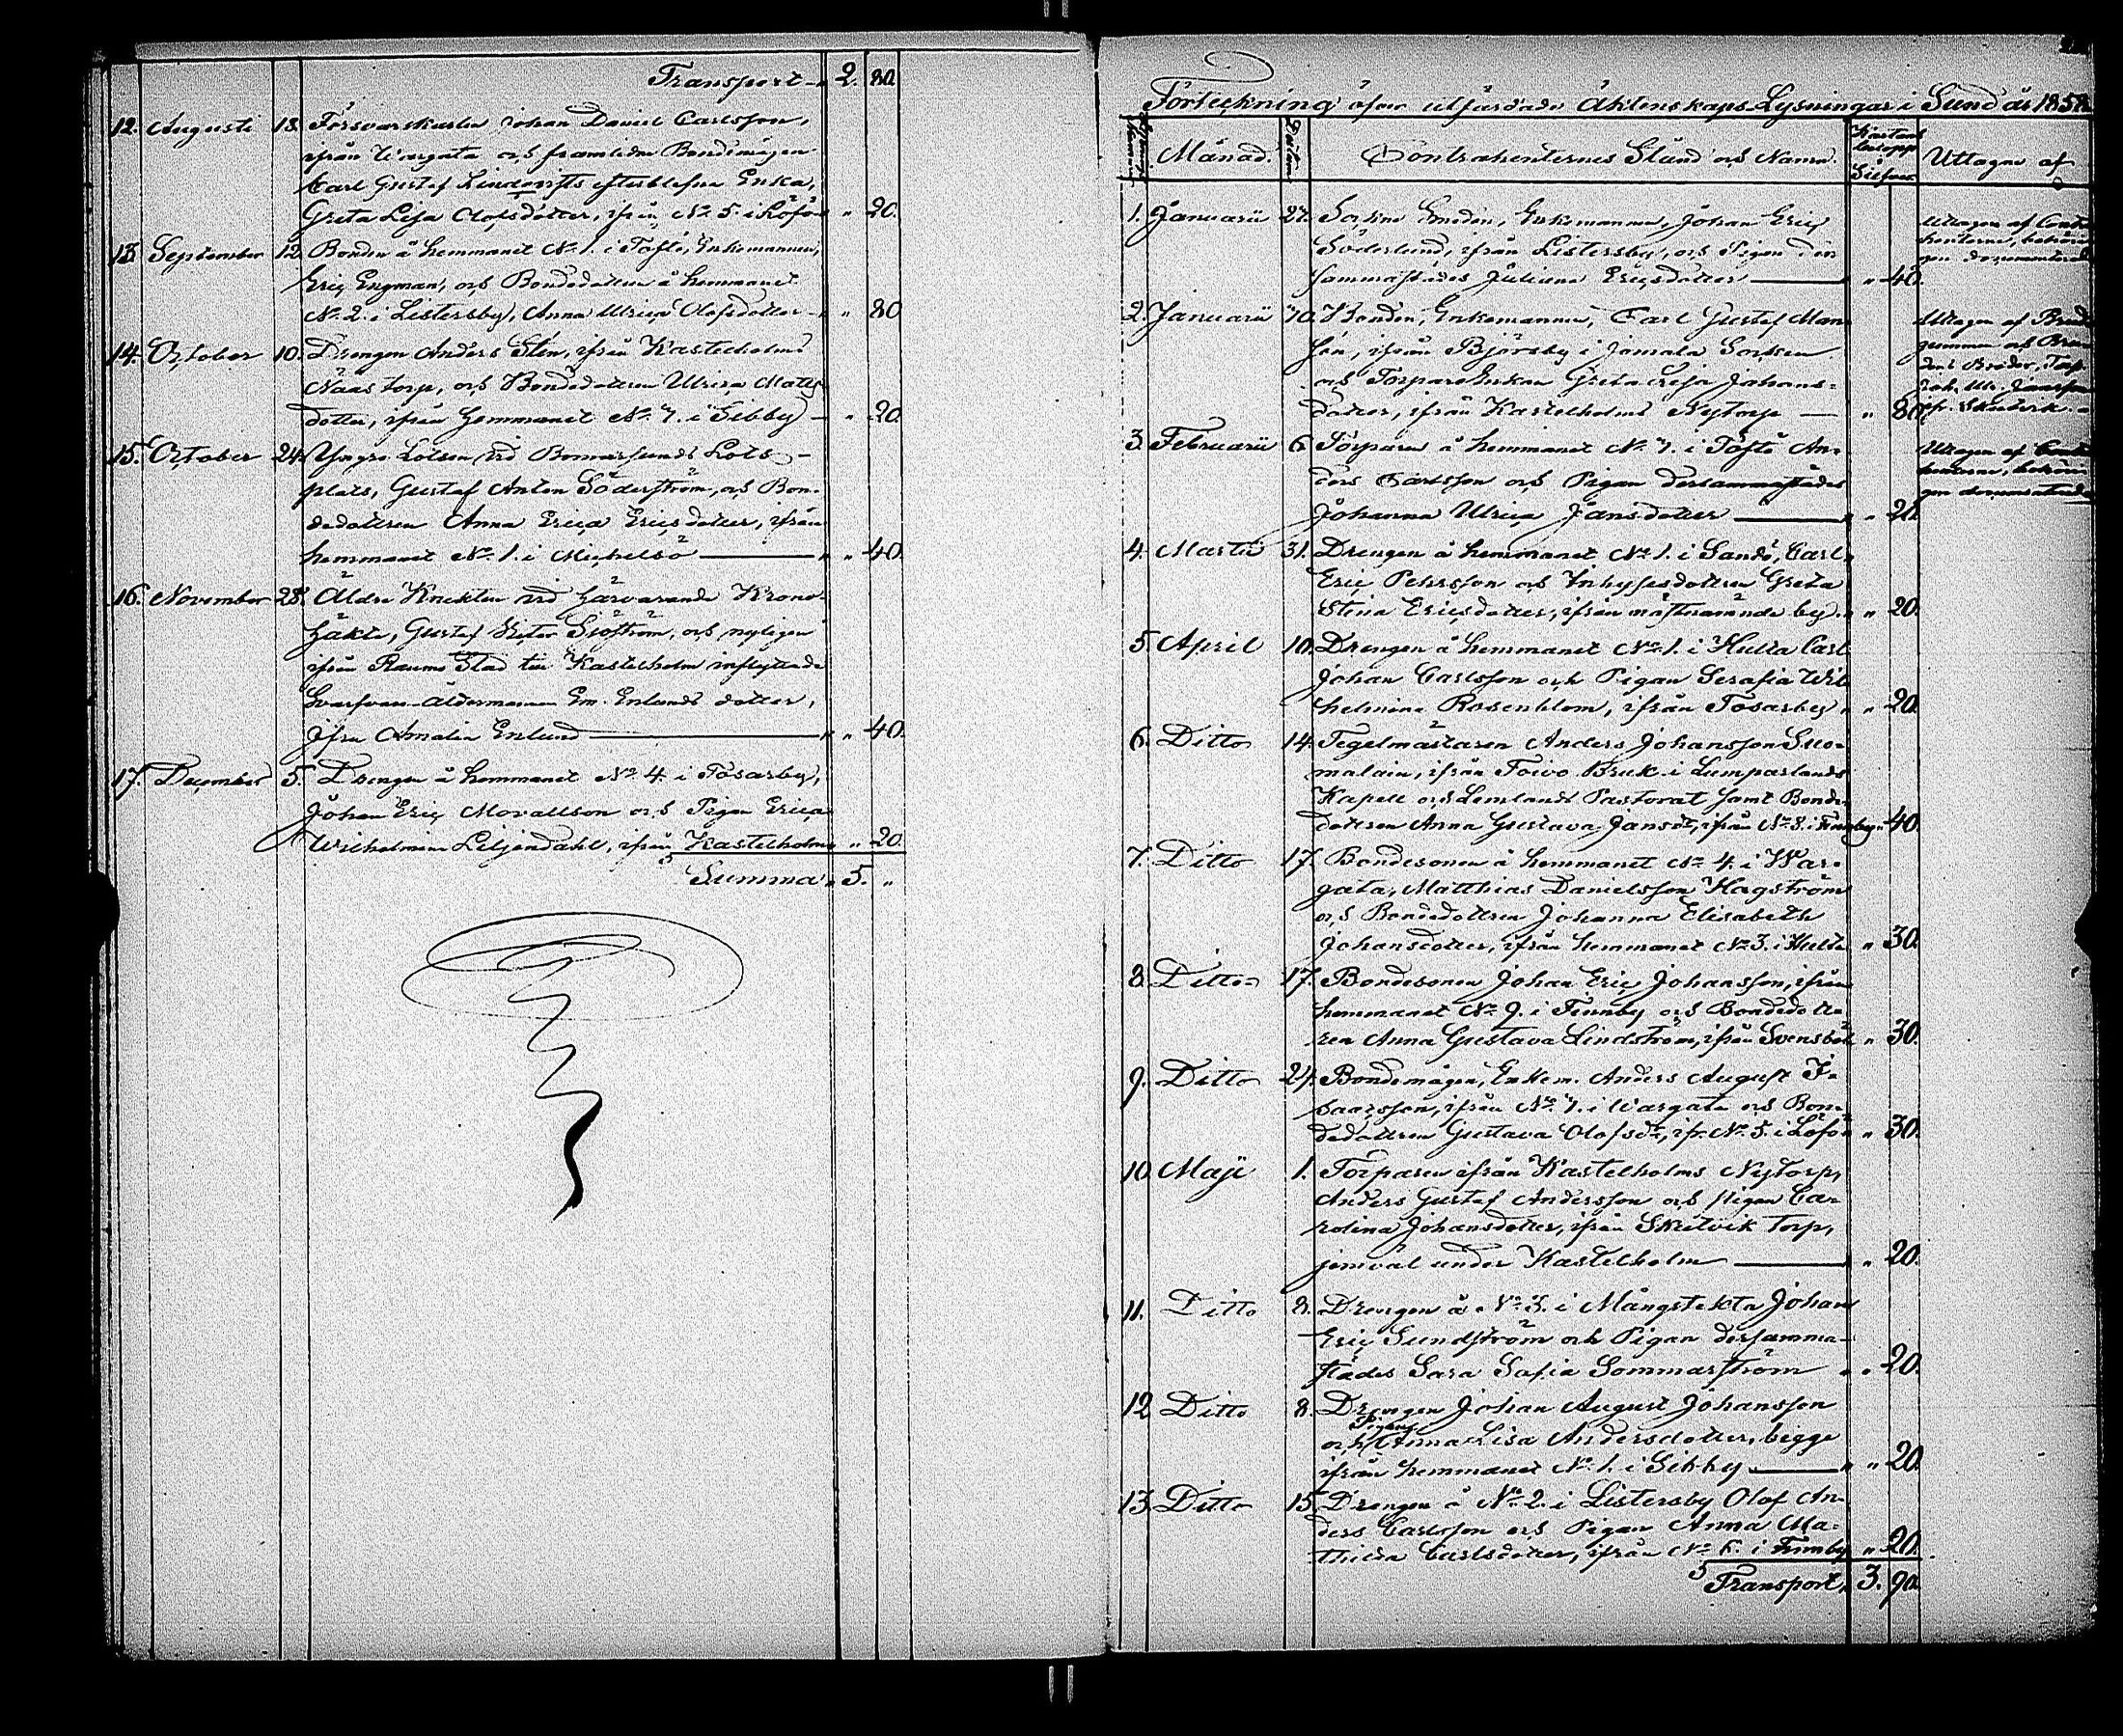 Transport 2. 80.
12. Augusti 18. Försvarskarlen Johan Daniel Carlsson,
ifrån Wargata och framledne Bondemågen
Carl Gustaf Lindqvists efterblefna Enka,
Greta Lisa Olofsdotter, ifrån No 5. i Löfö " 20.
13. September 12. Bonden å hemmanet No 1. i Töftö, Enkemannen,
Eric Engman, och Bondedottren å hemmanet
No 2. i Listersby, Anna Ulrica Olofsdotter " 80
14. October 10. Drengen Anders Sten, ifrån Kastelholms
Näas torp, och Bondedottren Ulrica Matts
dotter, ifrån hemmanet No 7. i Gibby " 20.
15. October 24. Yngre Lotsen vid Bomarsunds Lots-
plats, Gustaf Anton Söderström, och Bon-
dedottren Anna Erica Ericsdotter, ifrån
hemmanet No 1. i Michelsö " 40.
16. November 28. Äldre Knekten vid härvarande Krono-
häkte, Gustaf Victor Sjöström, och nyligen
ifrån Raumo Stad till Kastelholm inflyttade
Svarfvare-åldermannen Em. Enlunds dotter,
Jfru Amalia Enlund " 40.
17. December 5. Drengen å hemmanet No 4. i Tosarby,
Johan Eric Morallson och Pigan Erica
Wilhelmina Liljendahl, ifrån Kastelholm " 20.
Summa 5. "
Förteckning öfver utfärdade Äktenskaps Lysningar i Sund år 1858.
Månad. Datum Contrahenternes Stånd och Namn. Silfver. Uttagne af
1. Januarii 27. Sockne Smeden, Enkemannen, Johan Eric
Söderlund, ifrån Listersby, och Pigan der
sammastädes Juliana Ericsdotter " 40.
Uttagen af Contra
henterne, betrom
gen
2. Januarii 30. Bonden, Enkemannen, Carl Gustaf Man
son, ifrån Björsby i Jomala Socken
och Torpare Enkan Greta Lisa Johans-
dotter, ifrån Kastelholms Nytorp " 80.
Uttagen af Brud
gummen och Bru
dens Broder, Torp.
Joh. Ulr. Jansson
fr. Skutvik.
3. Februarii 6. Torparen å hemmanet No 7. i Töftö An-
ders Carlsson och Pigan dersammastädes
Johanna Ulrica Jansdotter " 20.
Uttagen af Contra
henterne, betrom
gen
4. Martii 31. Drengen å hemmanet No 1. i Sandö, Carl
Eric Pehrsson och Inhysesdottren Greta
Stina Ericsdotter, ifrån nästnämnde by. " 20.
5. April 10. Drengen å hemmanet No 1. i Hulta Carl
Johan Carlsson och Pigan Serafia Wil
helmina Rosenblom, ifrån Tosarby " 20.
6. Ditto 14. Tegelmästaren Anders Johansson Suo-
malain, ifrån Toivo Bruk i Lumparlands
Kapell och Lemlands Pastorat samt Bonde-
dottren Anna Gustava Jansdr, ifrån No 8. i Finnby " 40.
7. Ditto 17. Bondesonen å hemmanet No 4. i War-
gata, Matthias Danielsson Hagström
och Bondedottren Johanna Elisabeth
Johansdotter, ifrån hemmanet No 3. i Hulta " 30.
8. Ditto 17. Bondesonen Johan Eric Johansson, ifrån
hemmanet No 9. i Finnby och Bondedott-
ren Anna Gustava Lindström, ifrån Svensböle " 30.
9. Ditto 24. Bondemågen, Enkem. Anders August I-
saacsson, ifrån No 7. i Wargata och Bon-
dedottren Gustava Olofsdr, ifr. No 5. i Löfö " 30.
10. Maji 1. Torparen ifrån Kastelholms Nytorp,
Anders Gustaf Andersson och pigan Ca-
rolina Johansdotter, ifrån Skutvik Torp,
jemväl under Kastelholm " 20.
11. Ditto 8. Drengen å No 3. i Mångstekta Johan
Eric Sundström och Pigan dersamma-
städes Sara Sofia Sommarström " 20.
12. Ditto 8. Drengen Johan August Johansson
och Pigan Anna Lisa Andersdotter, begge
ifrån hemmanet No 1. i Gibby " " 20.
13. Ditto 15. Drengen å No 2. i Listersby Olof An-
ders Carlsson och Pigan Anna Ma-
thilda Carlsdotter, ifrån No 6. i Finnby " 20.
Transport, 3. 90.